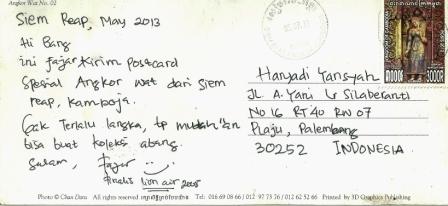 Angkor Wat No. 02
Siem Reap, May 2013
Hi Bang
ini fajar, kirim postcard
spesial Angkor wat dari siem
reap, kamboja.
Gak Terlalu langka, tp mudah"an
bisa buat koleksi abang.
Salam, fajar
finalis lion air 2005
Haryadi Yansyah
JL. A. Yani Lr Silaberanti
No 16 RT 40 RW 07
Plaju, Palembang
30252 INDONESIA
Photo © Chan Dara All rights reserved Tel: 016 69 08 66 / 012 97 73 76 / 012 62 52 66 Printed by 3D Graphics Publishing